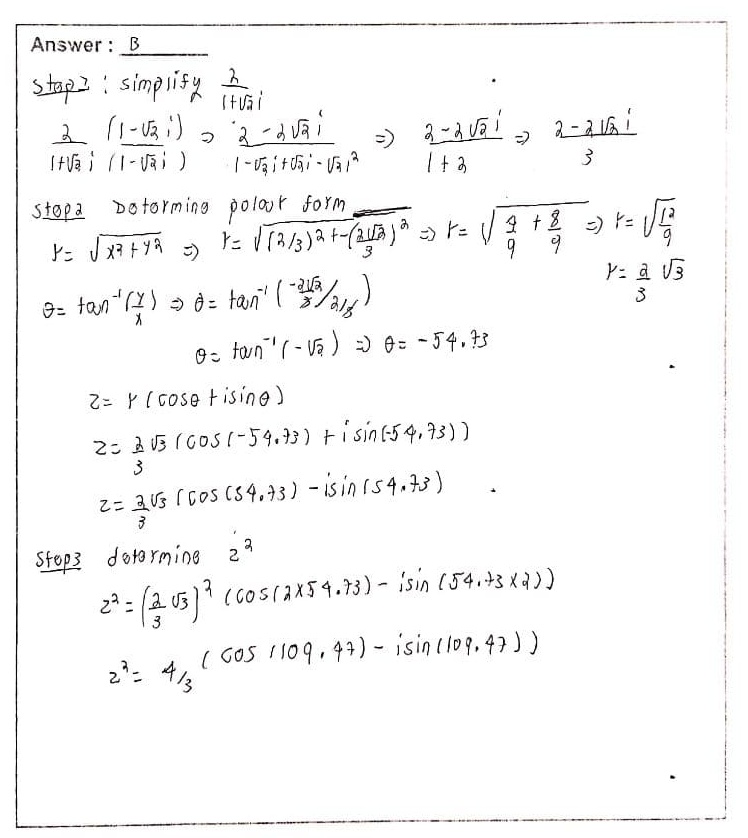 Answer : B
Step 1 : simplify 2/(1+√2 i)
2/(1+√2 i) (1-√2 i)/(1-√2 i) ⇒ (2-2√2 i)/(1-√2 i+√2 i-√2 i²) ⇒ (2-2√2 i)/(1+2) ⇒ (2-2√2 i)/3
Step 2 Determine polar form
r= √(x²+y²) ⇒ r= √((2/3)²+-(2√2/3)²) ⇒ r= √(4/9 + 8/9) ⇒ r= √(12/9)
r= 2/3 √3
θ= tan⁻¹(y/x) ⇒ θ= tan⁻¹(-2√2/3 / 2/3)
θ= tan⁻¹(-√2) ⇒ θ= -54.73
z= r(cosθ+isinθ)
z= 2/3 √3 (cos(-54.73) + i sin(-54.73))
z= 2/3 √3 (cos(54.73) - isin(54.73)
Step 3 determine z²
z² = (2/3 √3)² (cos(2x54.73) - isin(54.73x2))
z² = 4/3 (cos(109.47) - isin(109.47))